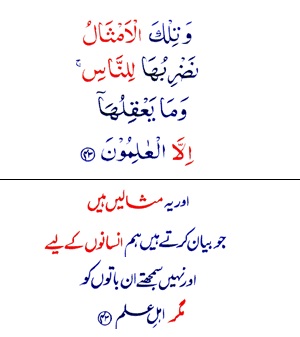 وَتِلْكَ الْاَمْثَالُ
نَضْرِبُهَا لِلنَّاسِ ۚ
وَمَا يَعْقِلُهَاۤ
اِلَّا الْعٰلِمُوْنَ ﴿۴۳﴾
اور یہ مثالیں ہیں
جو بیان کرتے ہیں ہم انسانوں کے لیے
اور نہیں سمجھتے ان باتوں کو
مگر اہلِ علم ﴿۴۳﴾